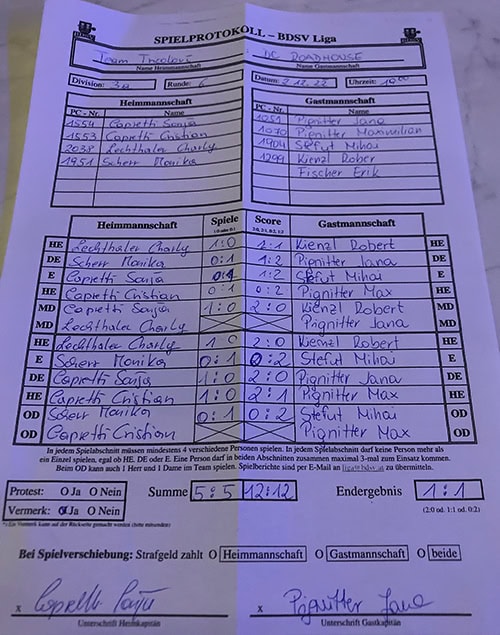 SPIELPROTOKOLL – BDSV Liga
Team DC ROADHOUSE
Name Heimmannschaft Name Gastmannschaft
Division: 3a Runde: 6 Datum: 2.12.22 Uhrzeit: 19:00
Heimmannschaft Gastmannschaft
PC - Nr. Name PC - Nr. Name
1554 Capretti Sonja 1051 Pignitter Jana
1553 Capretti Cristian 1970 Pignitter Maximilian
2038 Lechthaler Charly 1904 Stefut Mihai
1951 Scherr Monika 1299 Kienzl Rober
Fischer Erik
Heimmannschaft Spiele Score Gastmannschaft
HE Lechthaler Charly 1:0 Kienzl Robert HE
DE Scherr Monika 0:1 1:2 Pignitter Jana DE
E Capretti Sonja 0:1 1:2 Stefut Mihai E
HE Capretti Cristian 0:1 0:2 Pignitter Max HE
MD Capretti Sonja 1:0 2:0 Kienzl Robert MD
MD Lechthaler Charly Pignitter Jana MD
HE Lechthaler Charly 1:0 2:0 Kienzl Robert HE
E Scherr Monika 0:1 0:2 Stefut Mihai E
DE Capretti Sonja 1:0 2:0 Pignitter Jana DE
HE Capretti Cristian 1:0 2:1 Pignitter Max HE
OD Scherr Monika 0:1 0:2 Stefut Mihai OD
OD Capretti Cristian Pignitter Max OD
In jedem Spielabschnitt müssen mindestens 4 verschiedene Personen spielen. In jedem Spielabschnitt darf keine Person mehr als
ein Einzel spielen, egal ob HE, DE oder E. Eine Person darf in beiden Abschnitten zusammen maximal 3-mal zum Einsatz kommen.
Beim OD kann auch 1 Herr und 1 Dame im Team spielen. Spielberichte sind per E-Mail an zu übermitteln.
Protest: O Ja O Nein Summe 5:5 12:12 Endergebnis 1:1
Vermerk: O Ja O Nein (2:0 od. 1:1 od. 0:2)
Bei Spielverschiebung: Strafgeld zahlt O Heimmannschaft O Gastmannschaft O beide
x Capretti Sonja x Pignitter Jana
Unterschrift Heimkapitän Unterschrift Gastkapitän